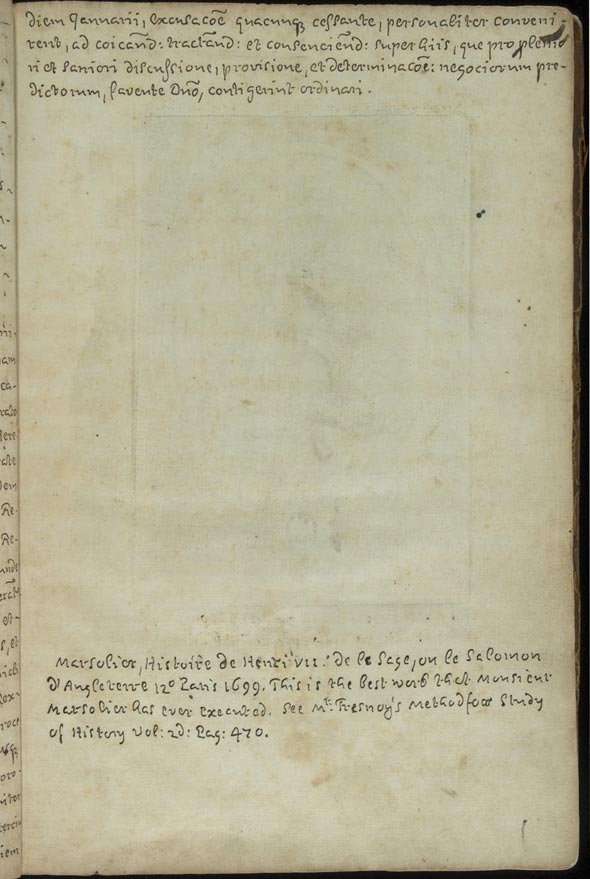 diem Januarii, excusacōe quacunqꝫ cessante, personaliter conveni-
rent, ad coicānd: tractānd: et consenciēnd: super hiis, que pro plenio
ri et saniori discussione, provisione, et determinacōe: negociorum pre-
dictorum, favente Dnō, contigerint ordinari.
Marsolier, Histoire de Henri VII. de le Sage, ou le Salomon
d'Angleterre 12º Paris 1699. This is the best work that Monsieur
Marsolier has ever executed. See Mr. Fresnoy's Method for Study
of History Vol: 2d: Pag: 470.